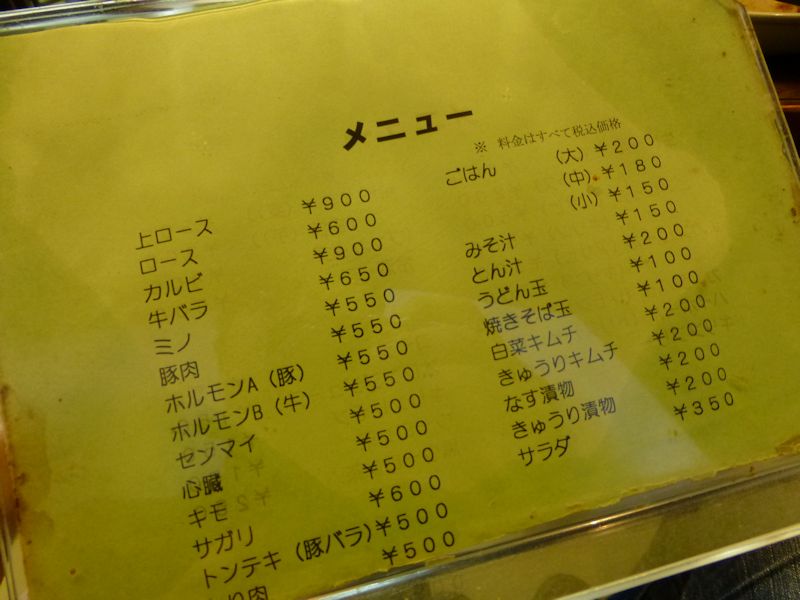 メニュー
※ 料金はすべて税込価格
上ロース ¥900
ロース ¥600
カルビ ¥900
牛バラ ¥650
ミノ ¥550
豚肉 ¥550
ホルモンA(豚) ¥550
ホルモンB(牛) ¥550
センマイ ¥500
心臓 ¥500
キモ ¥500
サガリ ¥600
トンテキ(豚バラ) ¥500
とり肉 ¥500
ごはん (大) ¥200
(中) ¥180
(小) ¥150
みそ汁 ¥150
とん汁 ¥200
うどん玉 ¥100
焼きそば玉 ¥100
白菜キムチ ¥200
きゅうりキムチ ¥200
なす漬物 ¥200
きゅうり漬物 ¥200
サラダ ¥350